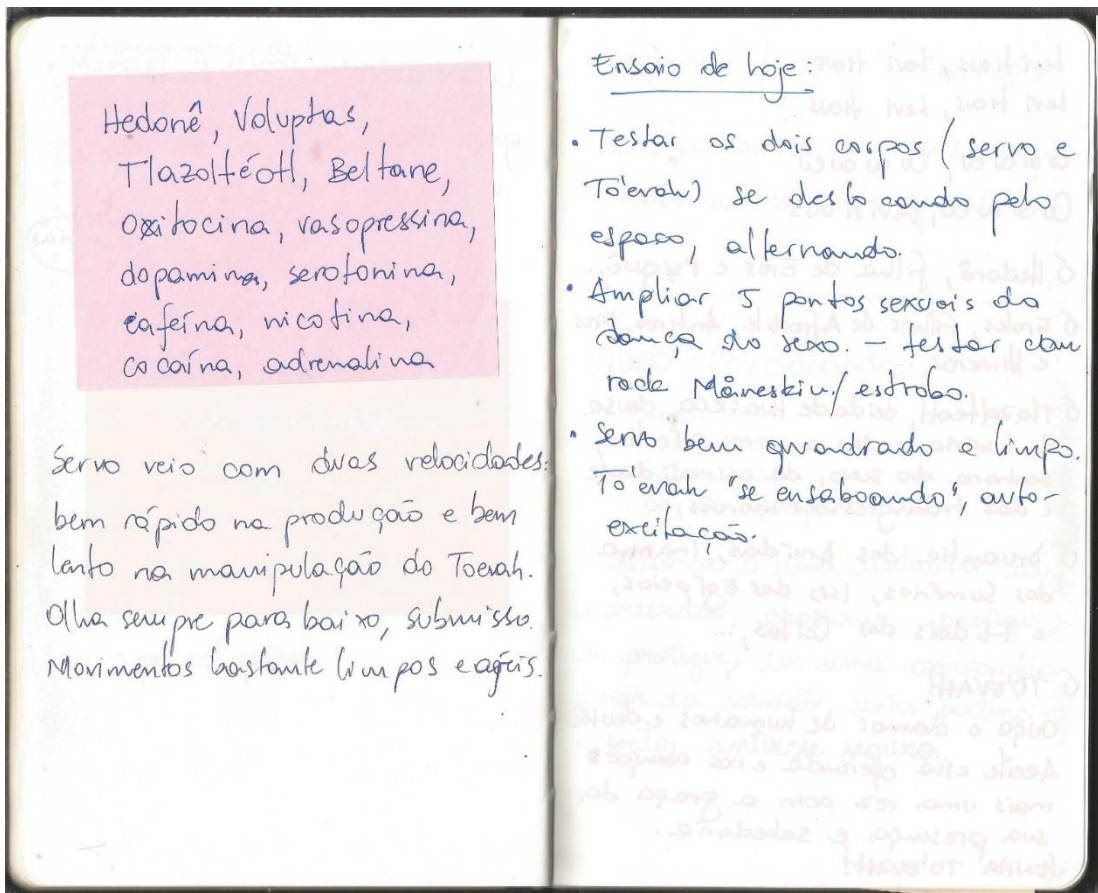 Hedonê, Voluptas,
Tlazoltéotl, Beltane,
oxitocina, vasopressina,
dopamina, serotonina,
cafeína, nicotina,
cocaína, adrenalina
Servo veio com duas velocidades:
bem rápido na produção e bem
lento na manipulação do Toevah.
Olha sempre para baixo, submisso.
Movimentos bastante limpos e ágeis.
Ensaio de hoje:
• Testar os dois corpos (servo e
To'evah) se deslocando pelo
espaço, alternando.
• Ampliar 5 pontos sexuais da
dança do sexo. – testar com
rock Måneskin/estrobo.
• Servo bem quadrado e limpo.
To'evah "se ensaboando", auto-
excitação.